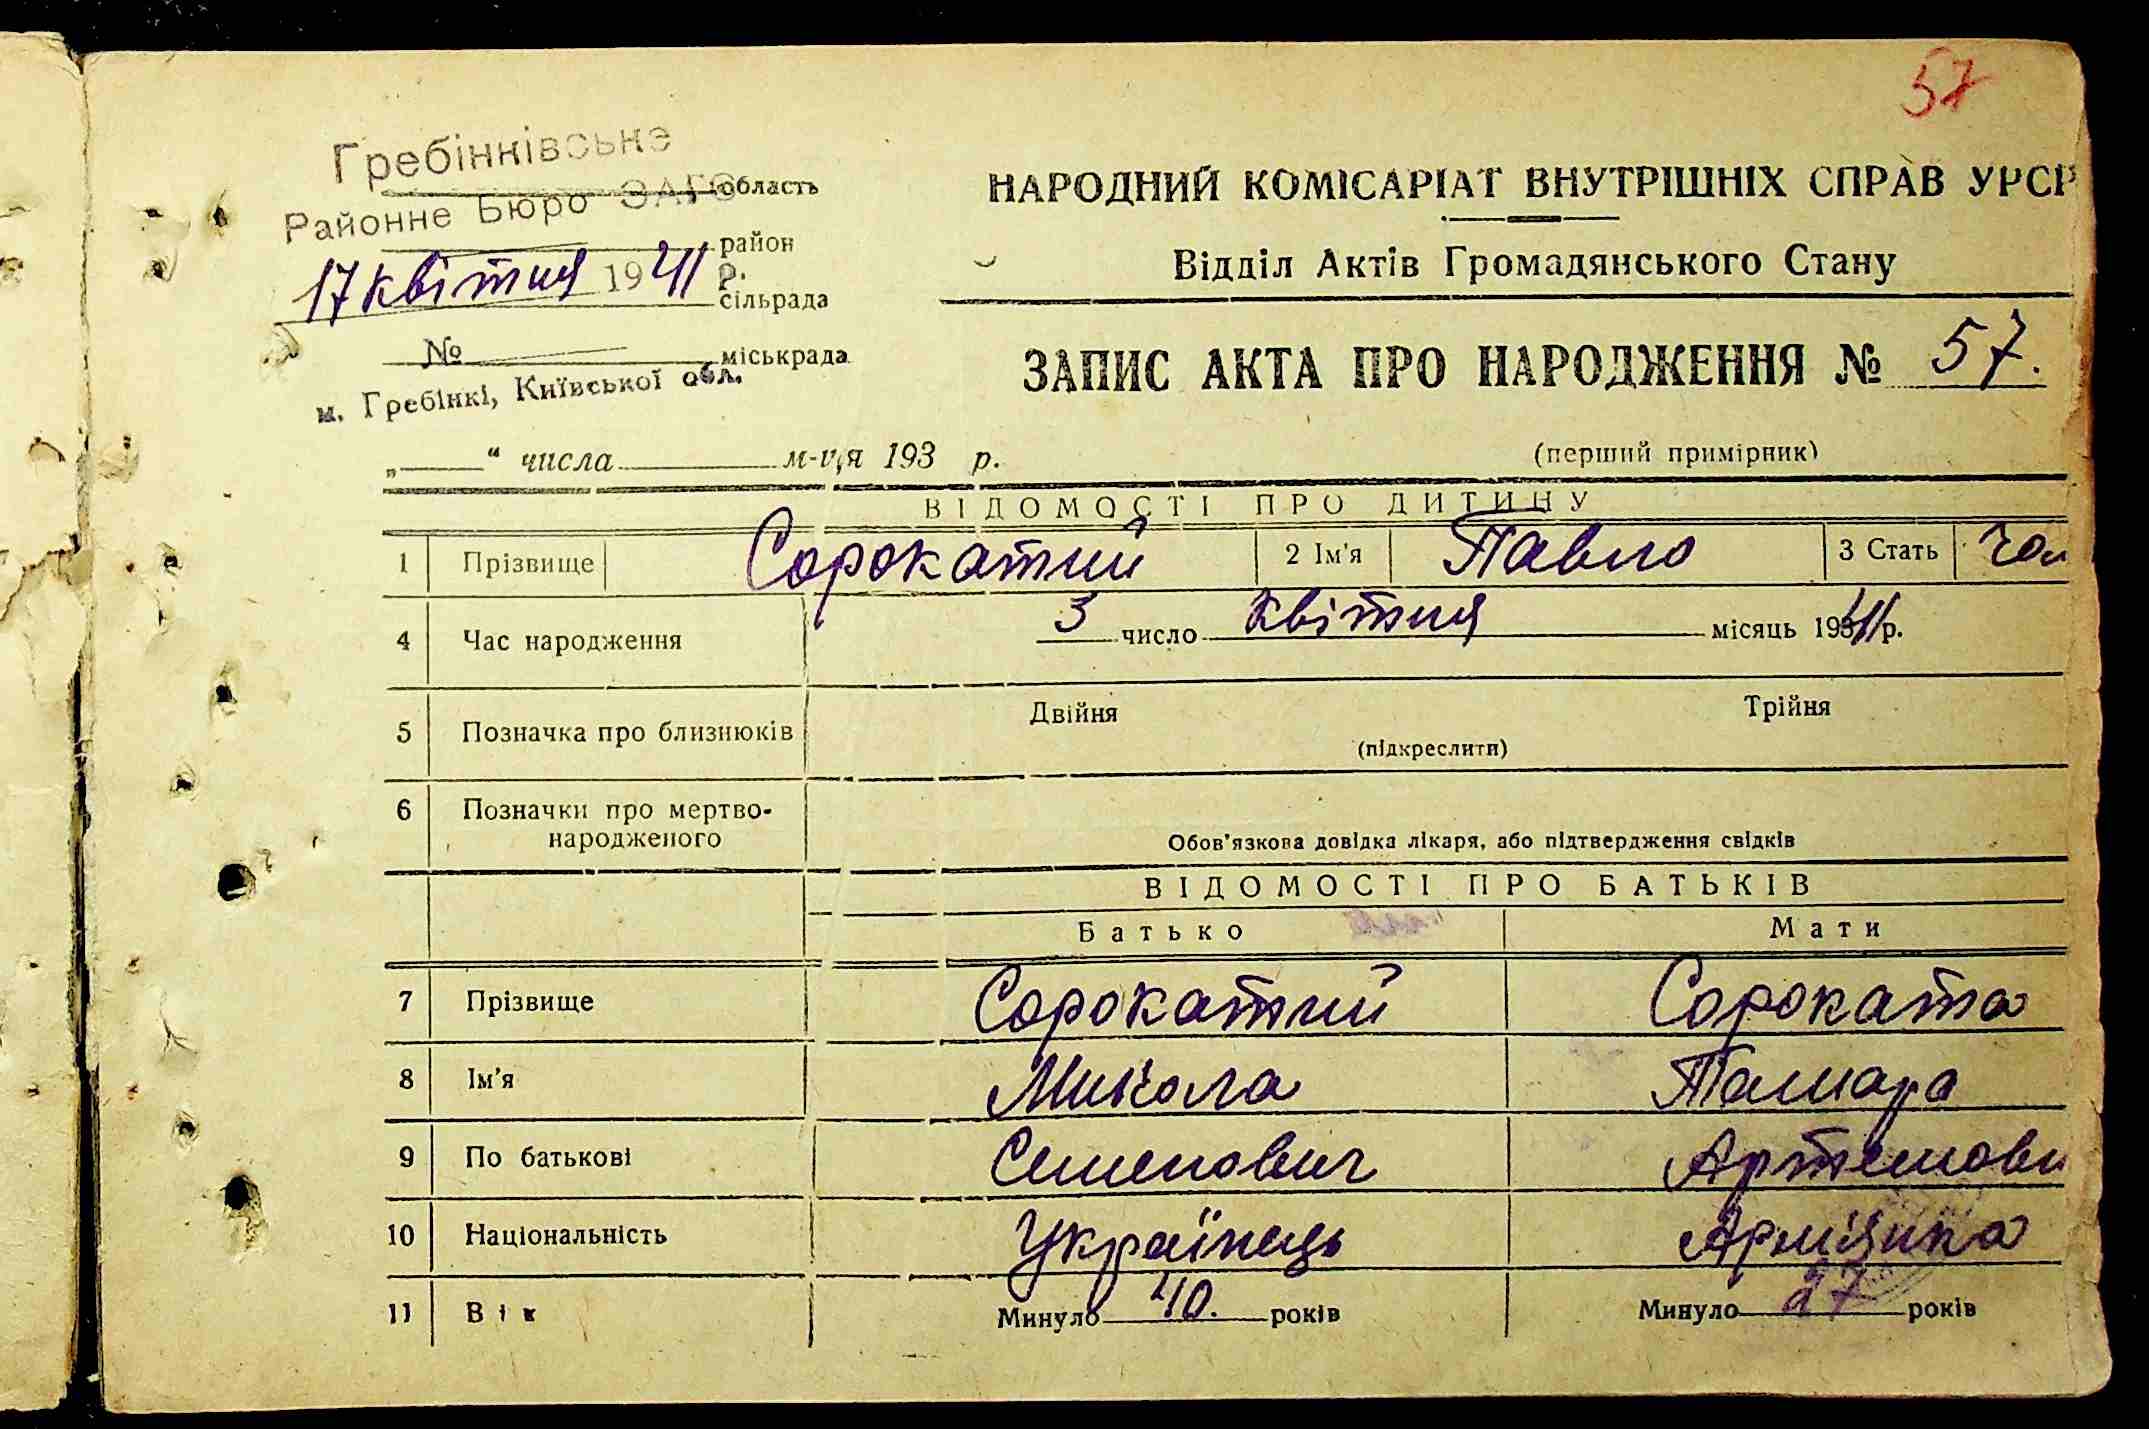 57
Гребінківське
область
Районне Бюро ЗАГС
район
17 квітня 1941 р.
сільрада
№
міськрада
м. Гребінкі, Київської обл.
„ “ числа м-ця 193 р.
НАРОДНИЙ КОМІСАРІАТ ВНУТРІШНІХ СПРАВ УРСР
Відділ Актів Громадянського Стану
ЗАПИС АКТА ПРО НАРОДЖЕННЯ № 57.
(перший примірник)
ВІДОМОСТІ ПРО ДИТИНУ
1 Прізвище Сорокатий 2 Ім'я Павло 3 Стать чол
4 Час народження 3 число квітня місяць 1941 р.
5 Позначка про близнюків Двійня Трійня
(підкреслити)
6 Позначки про мертво-
народженого
Обов'язкова довідка лікаря, або підтвердження свідків
ВІДОМОСТІ ПРО БАТЬКІВ
Батько Мати
7 Прізвище Сорокатий Сороката
8 Ім'я Микола Тамара
9 По батькові Семенович Артемови
10 Національність Українець Арміянка
11 Вік Минуло 40. років Минуло 27 років